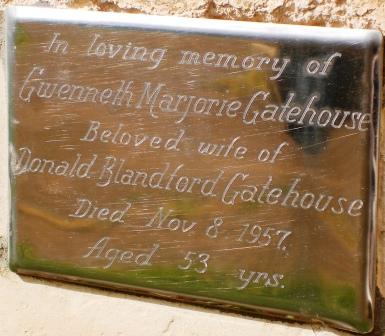 In loving memory of
Gwenneth Marjorie Gatehouse
Beloved wife of
Donald Blandford Gatehouse
Died Nov. 8. 1957.
Aged 53 yrs.